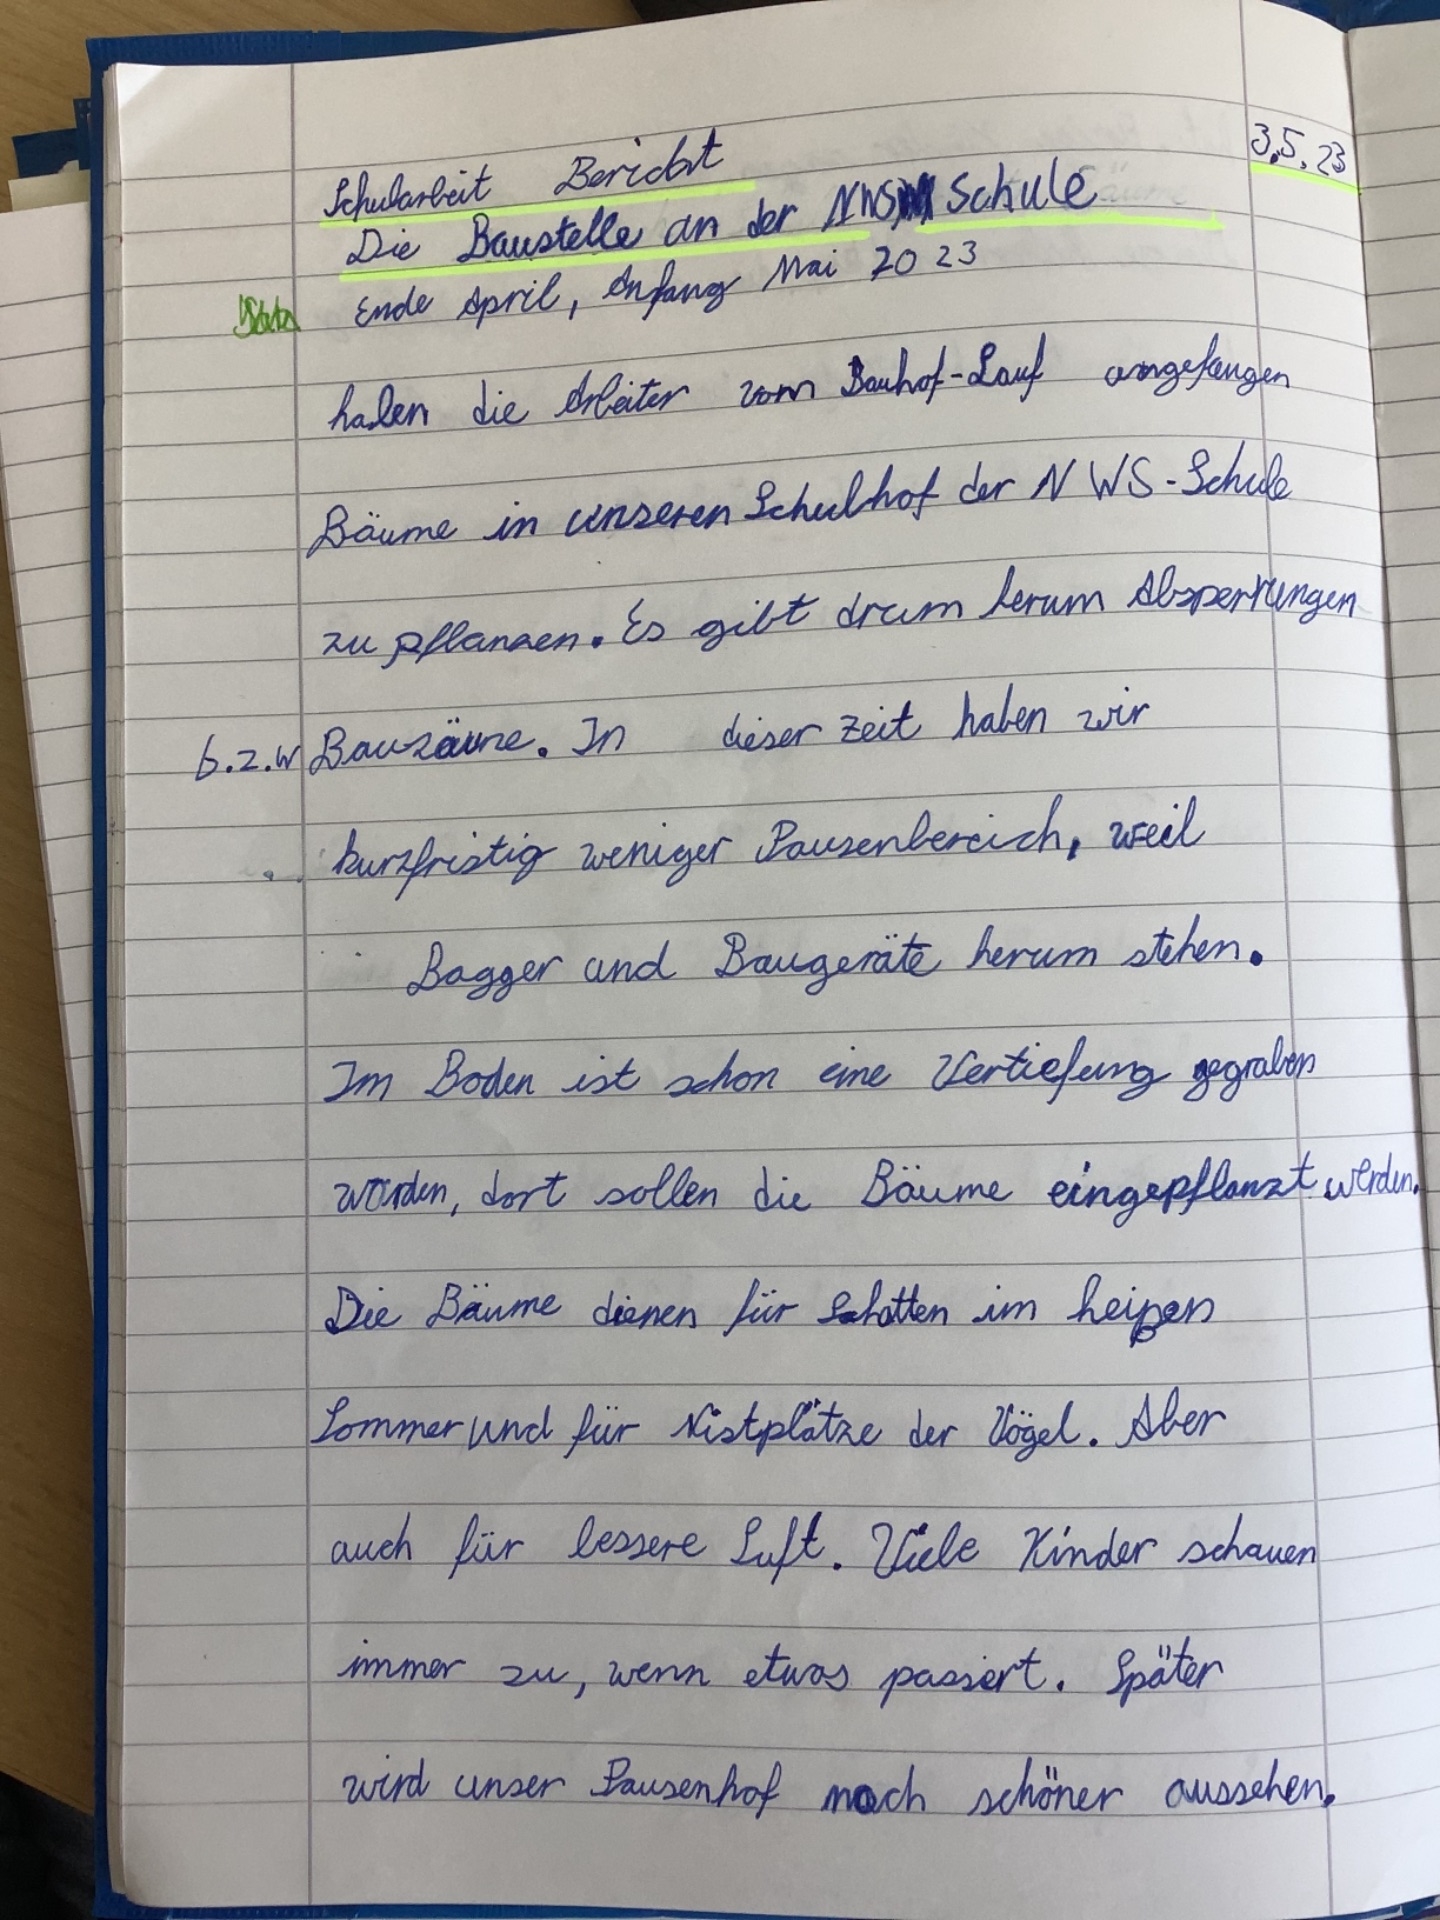 3.5.23
Schularbeit Bericht
Die Baustelle an der NWS Schule
Ende April, Anfang Mai 2023
haben die Arbeiter vom Bauhof-Lauf angefangen
Bäume in unseren Schulhof der NWS-Schule
zu pflanzen. Es gibt drum herum Absperrungen
b.z.w Bauzäune. In dieser Zeit haben wir
kurzfristig weniger Pausenbereich, weil
Bagger und Baugeräte herum stehen.
Im Boden ist schon eine Vertiefung gegraben
worden, dort sollen die Bäume eingepflanzt werden.
Die Bäume dienen für Schatten im heißen
Sommer und für Nistplätze der Vögel. Aber
auch für bessere Luft. Viele Kinder schauen
immer zu, wenn etwas passiert. Später
wird unser Pausenhof noch schöner aussehen.